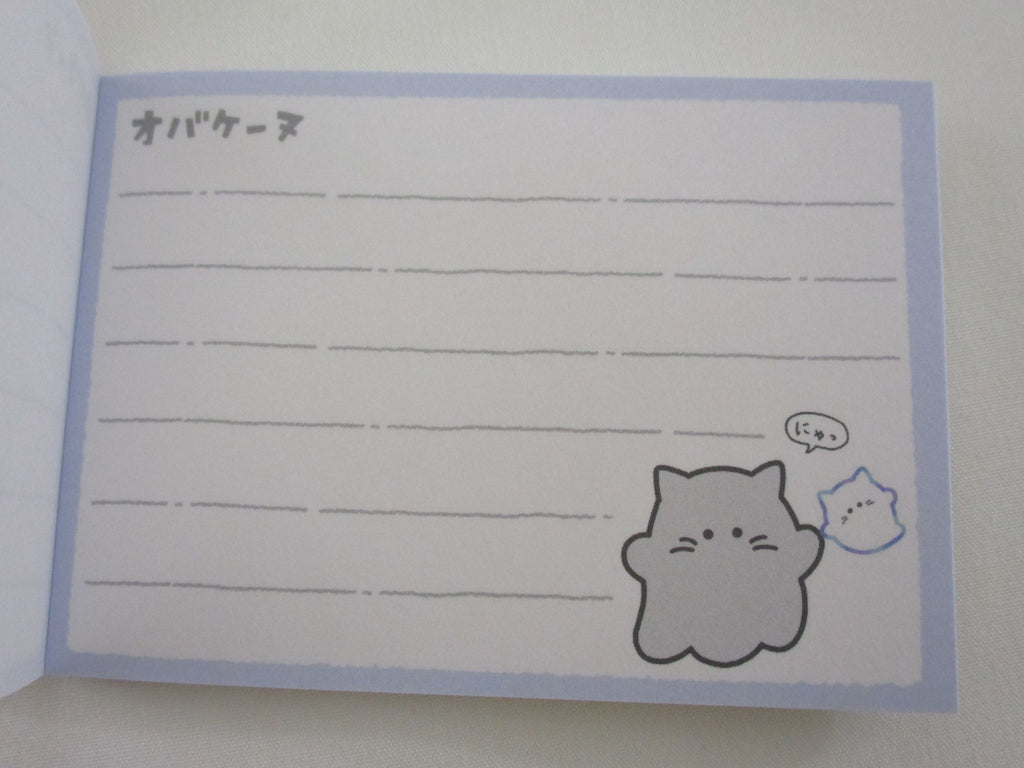 オバケーヌ
にゃっ